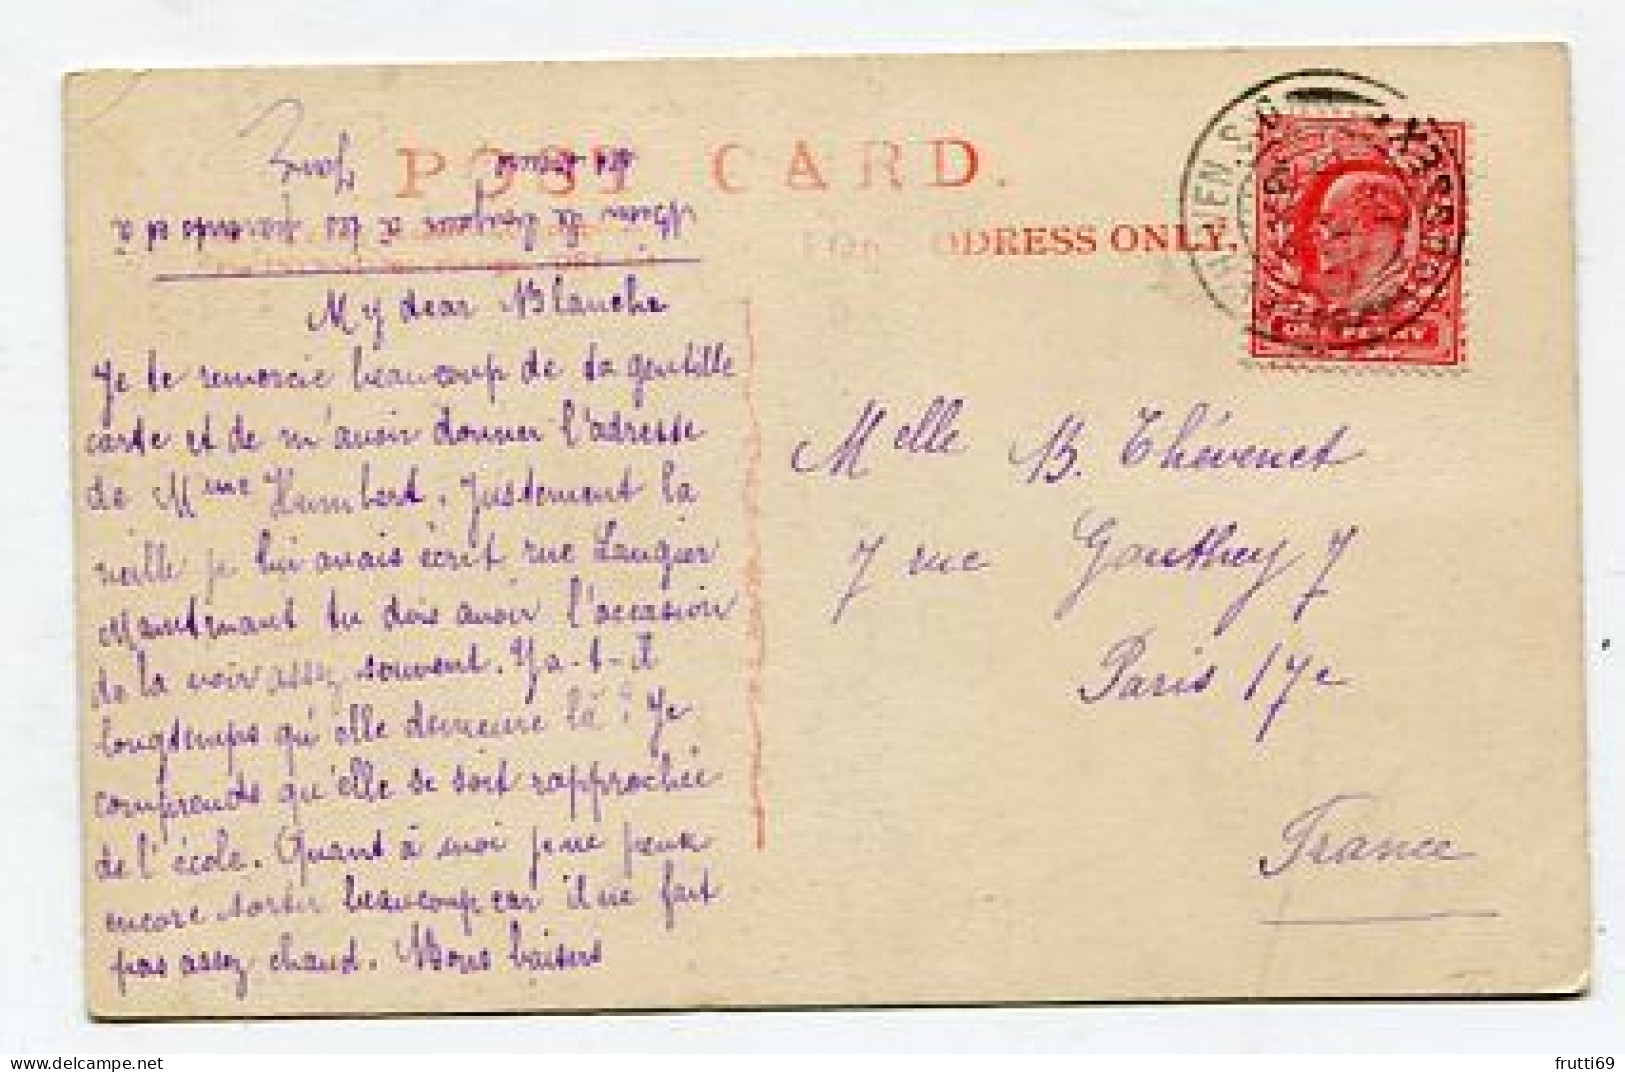 POST CARD.
ADDRESS ONLY.
My dear Blanche
Je te remercie beaucoup de ta gentille
carte et de m'avoir donner l'adresse
de Mme Humbert. Justement la
veille je lui avais écrit rue Laugier
Maintenant tu dois avoir l'occasion
de la voir assez souvent. Y a-t-il
longtemps qu'elle demeure là? Je
comprends qu'elle se soit rapprochée
de l'école. Quant à moi je ne peux
encore sortir beaucoup car il ne fait
pas assez chaud. Bons baisers
Bien le bonjour à tes parents et à
ta
Melle B. Thévenet
7 rue Gauthey 7
Paris 17e
France
ONE PENNY
frutti69